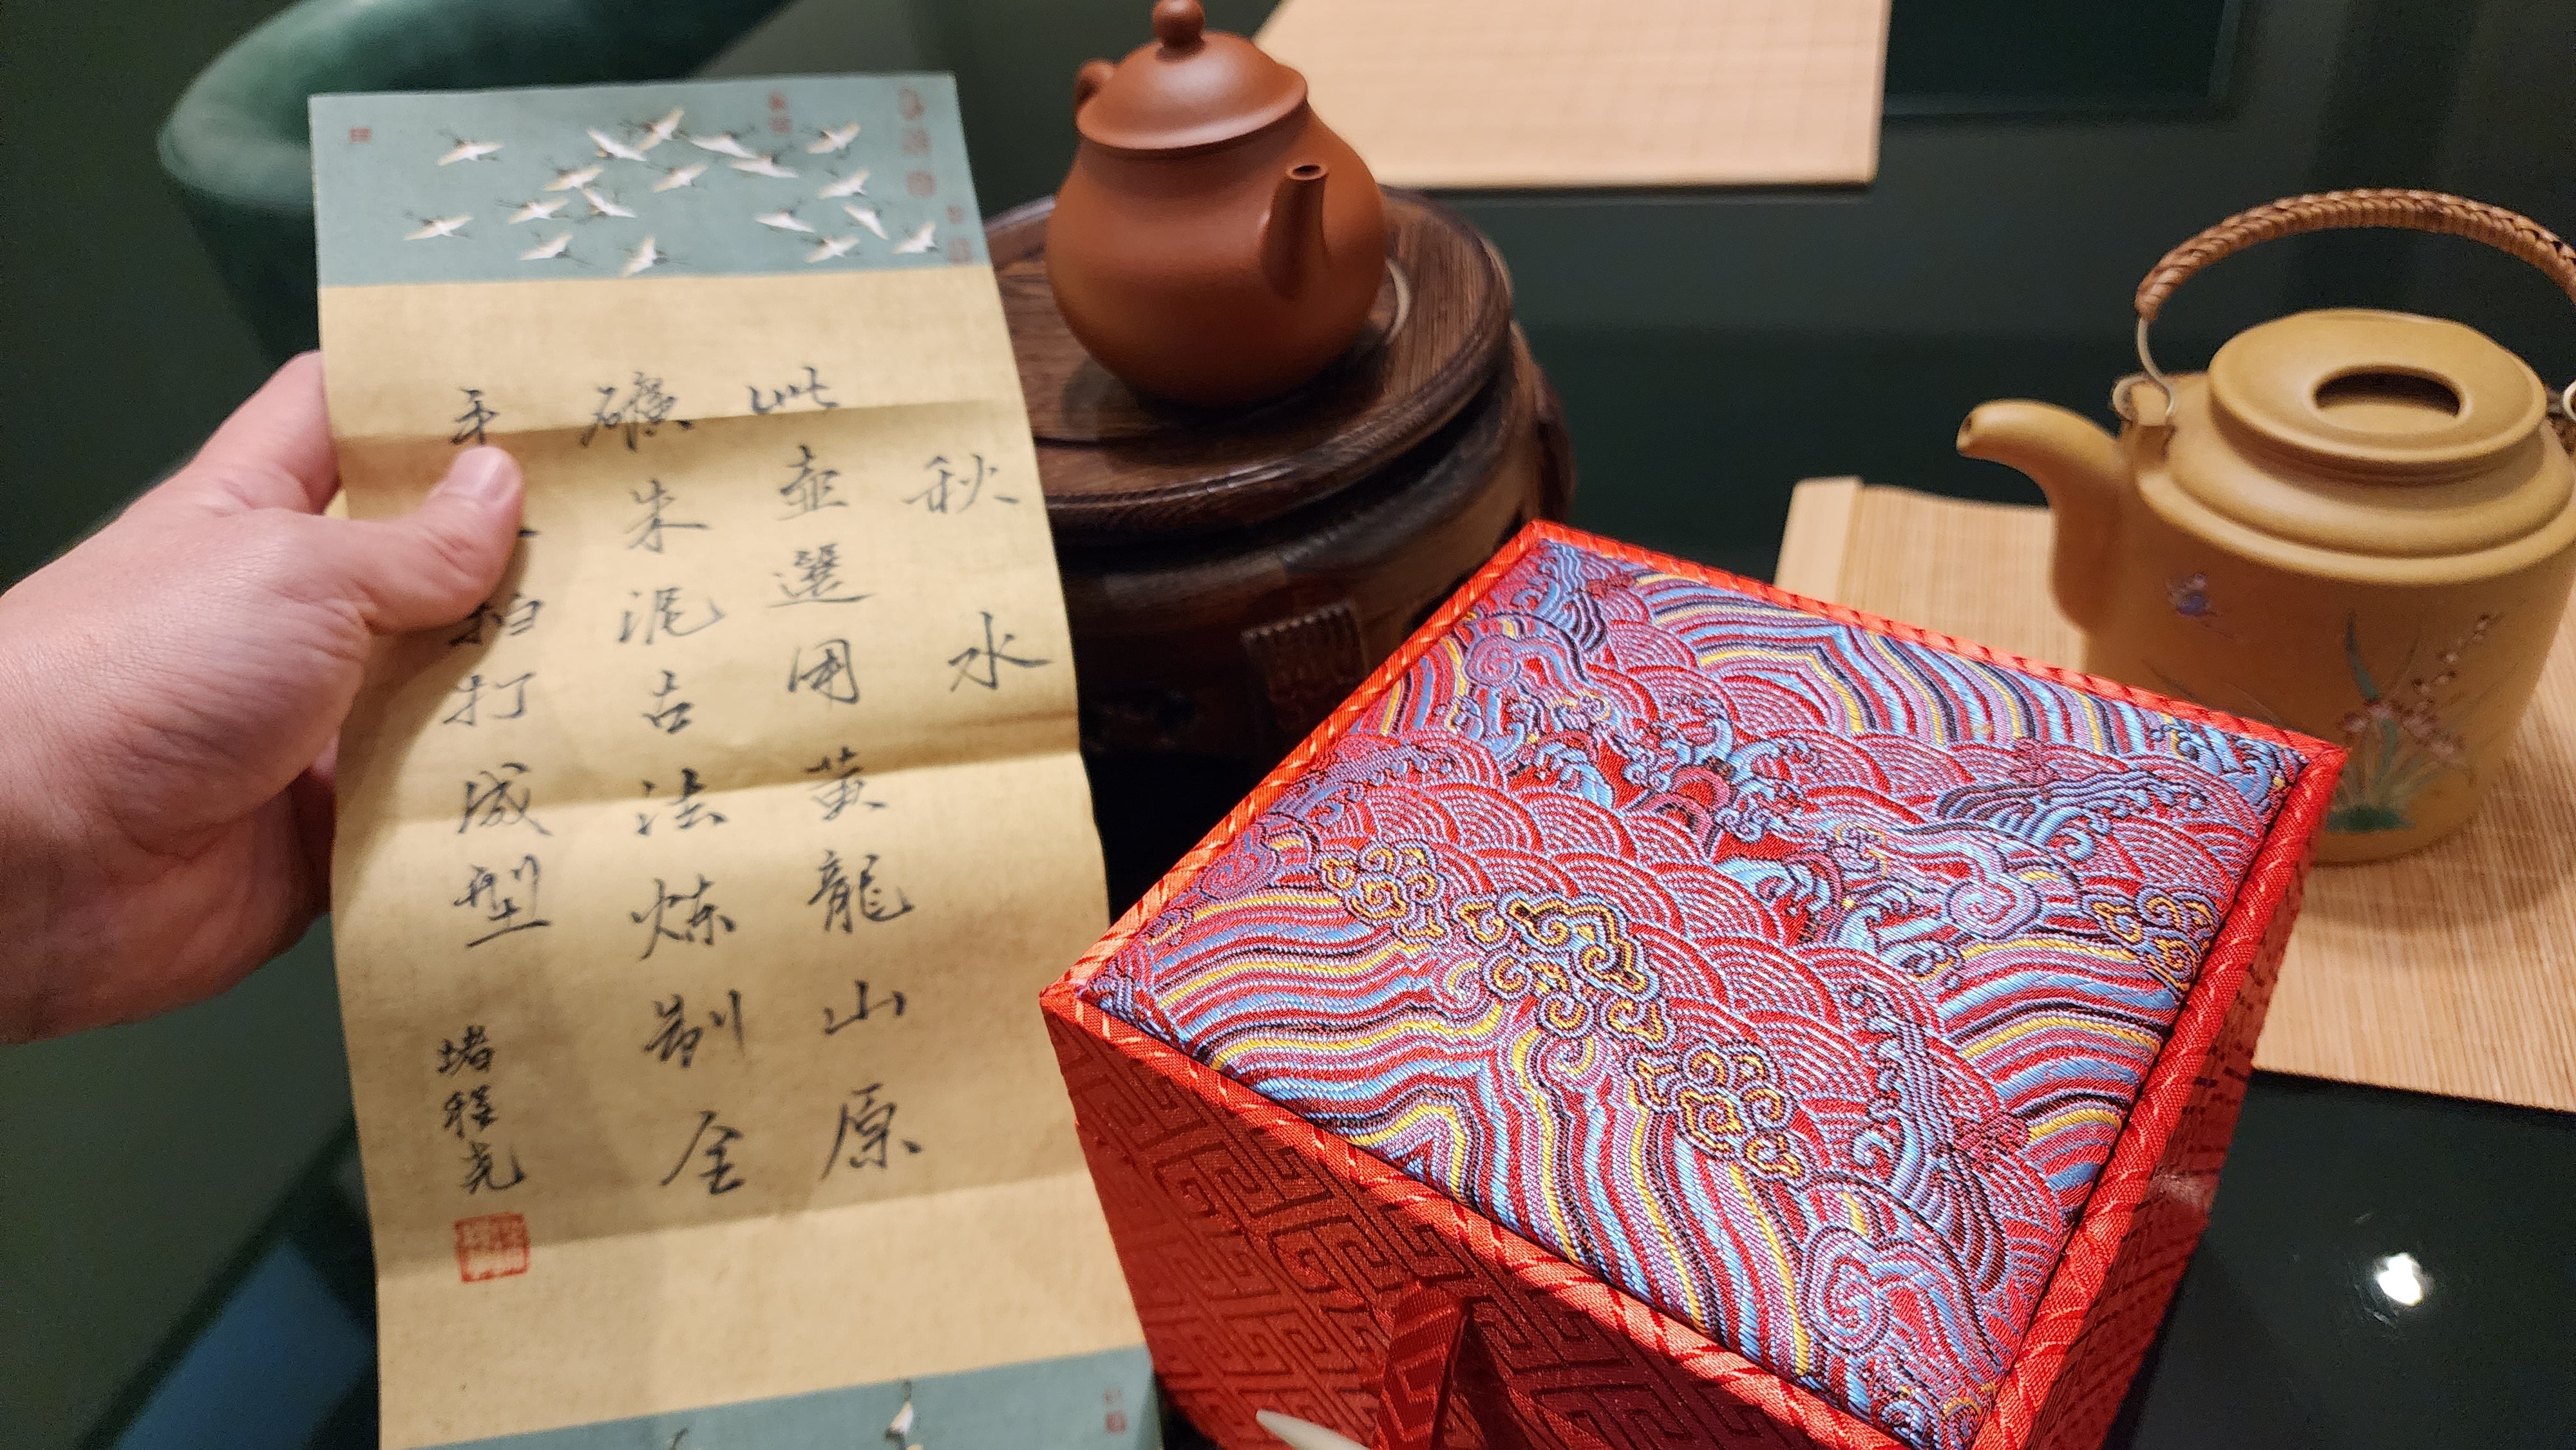 秋水
此壶選用黄龍山原
礦朱泥古法炼制全
手拍打成型
堵程尧